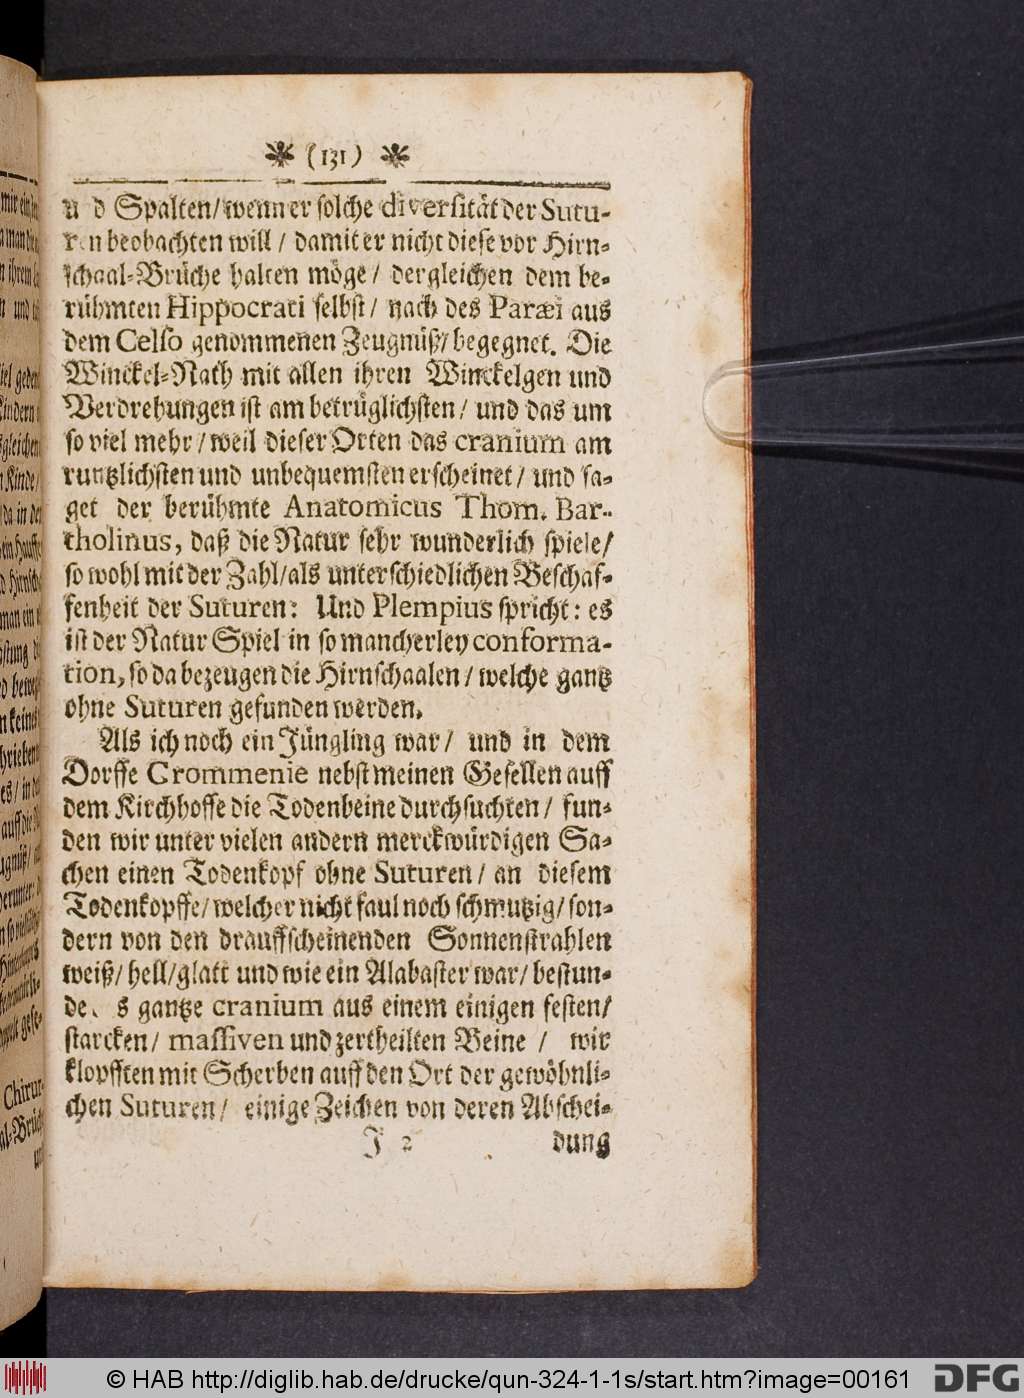 (131)
u d Spalten/wenn er solche diversität der Sutu-
ren beobachten will / damit er nicht diese vor Hirn-
schaal-Brüche halten möge / dergleichen dem be-
rühmten Hippocrati selbst / nach des Paræi aus
dem Celso genommenen Zeugnüß/ begegnet. Die
Winckel-Nath mit allen ihren Winckelgen und
Verdrehungen ist am betrüglichsten / und das um
so viel mehr / weil dieser Orten das cranium am
runtzlichsten und unbequemsten erscheinet / und sa-
get der berühmte Anatomicus Thom. Bar-
tholinus, daß die Natur sehr wunderlich spiele /
so wohl mit der Zahl/als unterschiedlichen Beschaf-
fenheit der Suturen: Und Plempius spricht: es
ist der Natur Spiel in so mancherley conforma-
tion, so da bezeugen die Hirnschaalen / welche gantz
ohne Suturen gefunden werden.
Als ich noch ein Jüngling war / und in dem
Dorffe Crommenie nebst meinen Gesellen auff
dem Kirchhoffe die Todenbeine durchsuchten / fun-
den wir unter vielen andern merckwürdigen Sa-
chen einen Todenkopf ohne Suturen / an diesem
Todenkopffe/ welcher nicht faul noch schmutzig/ son-
dern von den drauffscheinenden Sonnenstrahlen
weiß/ hell/glatt und wie ein Alabaster war/ bestun-
de s gantze cranium aus einem einigen festen/
starcken/ massiven und zertheilten Beine / wir
klopfften mit Scherben auff den Ort der gewöhnli-
chen Suturen / einige Zeichen von deren Abschei-
J 2 dung
Chirur-
© HAB http://diglib.hab.de/drucke/qun-324-1-1s/start.htm?image=00161
DFG